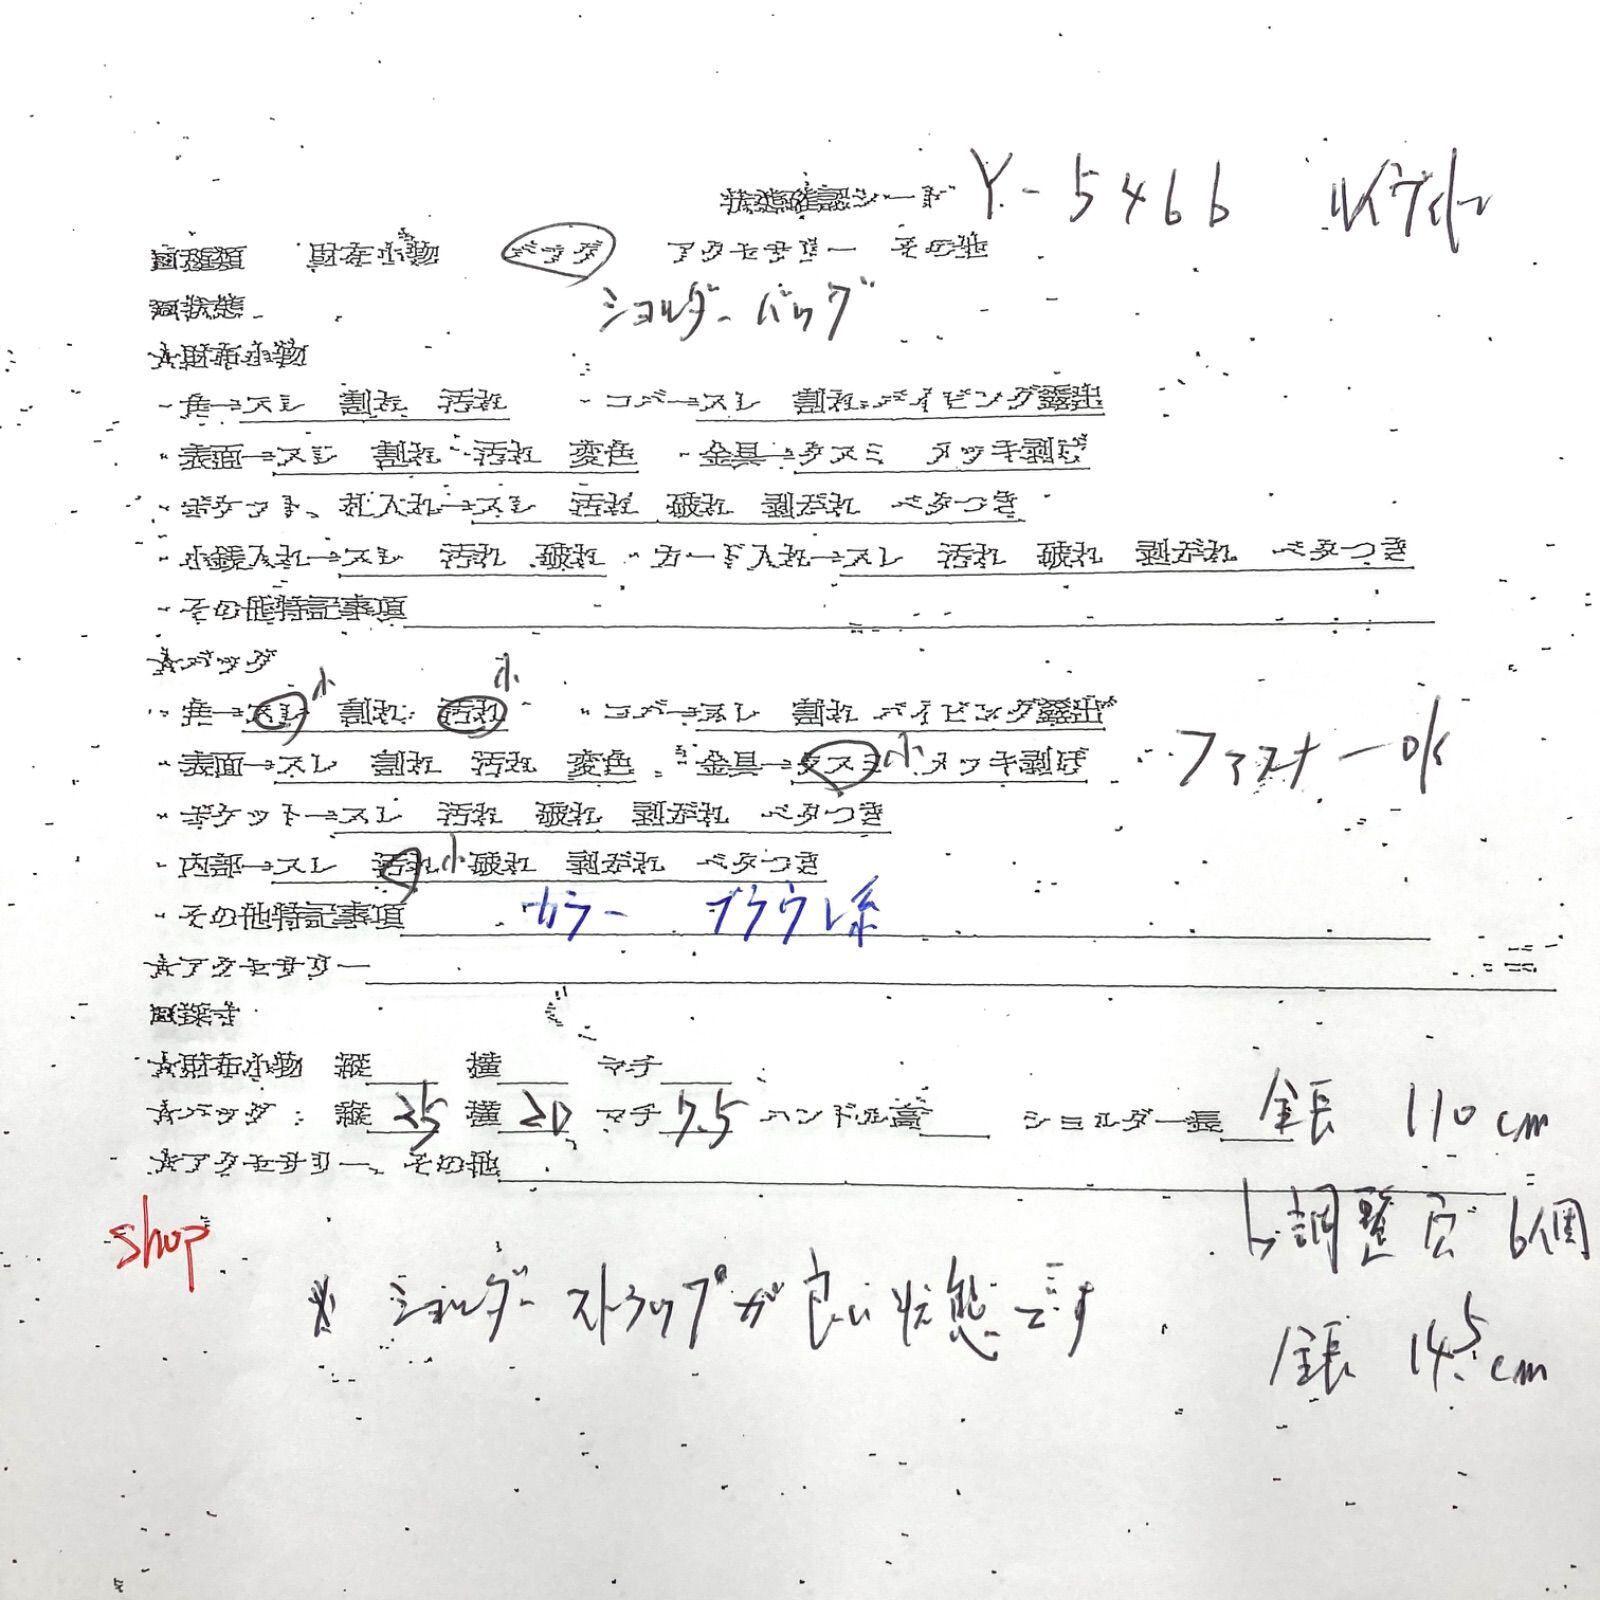 状態確認シート Y-5466 ルイヴィトン
□種類 財布小物 バッグ アクセサリー その他
□状態 ショルダーバッグ
☆財布小物
・角→スレ 割れ 汚れ ・コバ→スレ 割れ パイピング露出
・表面→スレ 割れ 汚れ 変色 ・金具→クスミ メッキ剥げ
・ポケット、札入れ→スレ 汚れ 破れ 剥がれ ベタつき
・小銭入れ→スレ 汚れ 破れ ・カード入れ→スレ 汚れ 破れ 剥がれ ベタつき
・その他特記事項
☆バッグ
・角→スレ小 割れ 汚れ小 ・コバ→スレ 割れ パイピング露出
・表面→スレ 割れ 汚れ 変色 ・金具→クスミ小 メッキ剥げ ファスナーOK
・ポケット→スレ 汚れ 破れ 剥がれ ベタつき
・内部→スレ 汚れ小 破れ 剥がれ ベタつき
・その他特記事項 カラー ブラウン系
☆アクセサリー
□採寸
☆財布小物 縦 横 マチ
☆バッグ:縦25 横20 マチ7.5 ハンドル高 ショルダー長 全長 110cm
☆アクセサリー、その他
調整穴 6個
shop
※ ショルダーストラップが良い状態です
全長 145cm